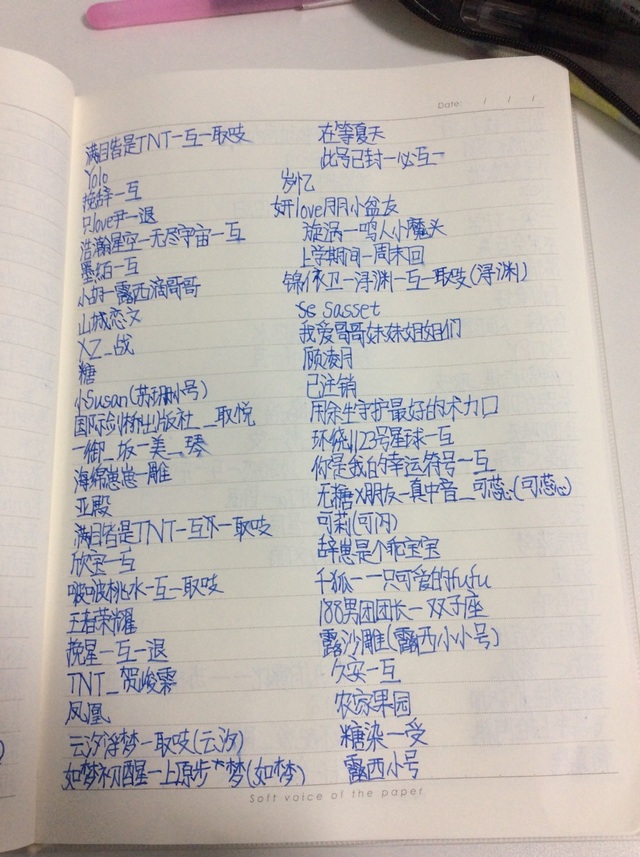 Date: / / /
满目皆是TNT一互一取吱
Yolo
挽辞一互
只love尹一退
浩瀚星空一无尽宇宙一互
墨焰一互
小胡一露西涵哥哥
山城恋文
XZ_战
糖
小Susan(苏珊小号)
国际剑桥出版社_取悦
一御_坂一美_琴
海绵崽崽一雕
亚殿
满目皆是TNT一互不一取吱
欣宝一互
啵啵桃水一互一取吱
王者荣耀
挽星一互一退
TNT_贺峻霖
凤凰
云汐浮梦一取吱(云汐)
如梦初醒一上原步*梦(如梦)
在等夏天
此号已封一必互一
岁忆
妍love朋朋小盆友
旋涡一鸣人小魔头
上学期间一周末回
锦依卫一浔渊一互一取吱(浔渊)
Se Sasset
我爱哥哥妹妹姐姐们
顾凌月
已注销
用余生守护最好的术力口
环绕1123号星球一互
你是我的幸运符号一互
无糖X朋友一真中音_可蕊心(可蕊心)
可莉(可闪)
辞崽是个乖宝宝
千狐一一只可爱的fufu
188男团团长一双子座
露沙雕(露西小小号)
欠安一互
农家果园
糖染一受
露西小号
Soft voice of the paper